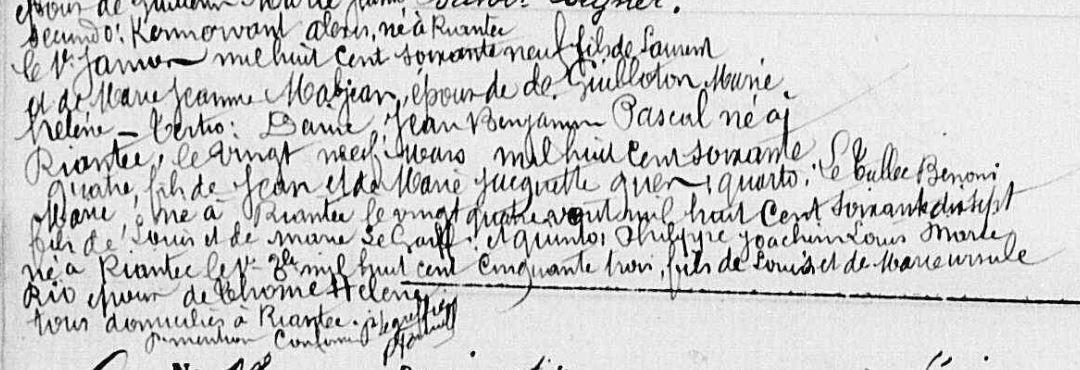 époux de Guillemin Marie
secundo: Kermorvant alexis, né à Riantec
le 1er Janvier mil huit cent soixante neuf fils de Laurent
et de Marie Jeanne Mabjean, époux de de Guilloton Marie
hélène – tertio: Jean Benjamin Pascal né à
Riantec, le vingt neuf Mars mil huit cent soixante
quatre, fils de Jean et de Marie Jacquette quarto: Le Tallec Benoni
Marie, né à Riantec le vingt quatre août mil huit cent soixante dix sept
fils de Louis et de marie Le Garff. et quinto: Philippe Joachim Louis Marie
né à Riantec le 1er mil huit cent cinquante trois, fils de Louis et de Marie ursule
Rio époux de thomé Hélène
tous domiciliés à Riantec.
p. mention conforme, le greffier